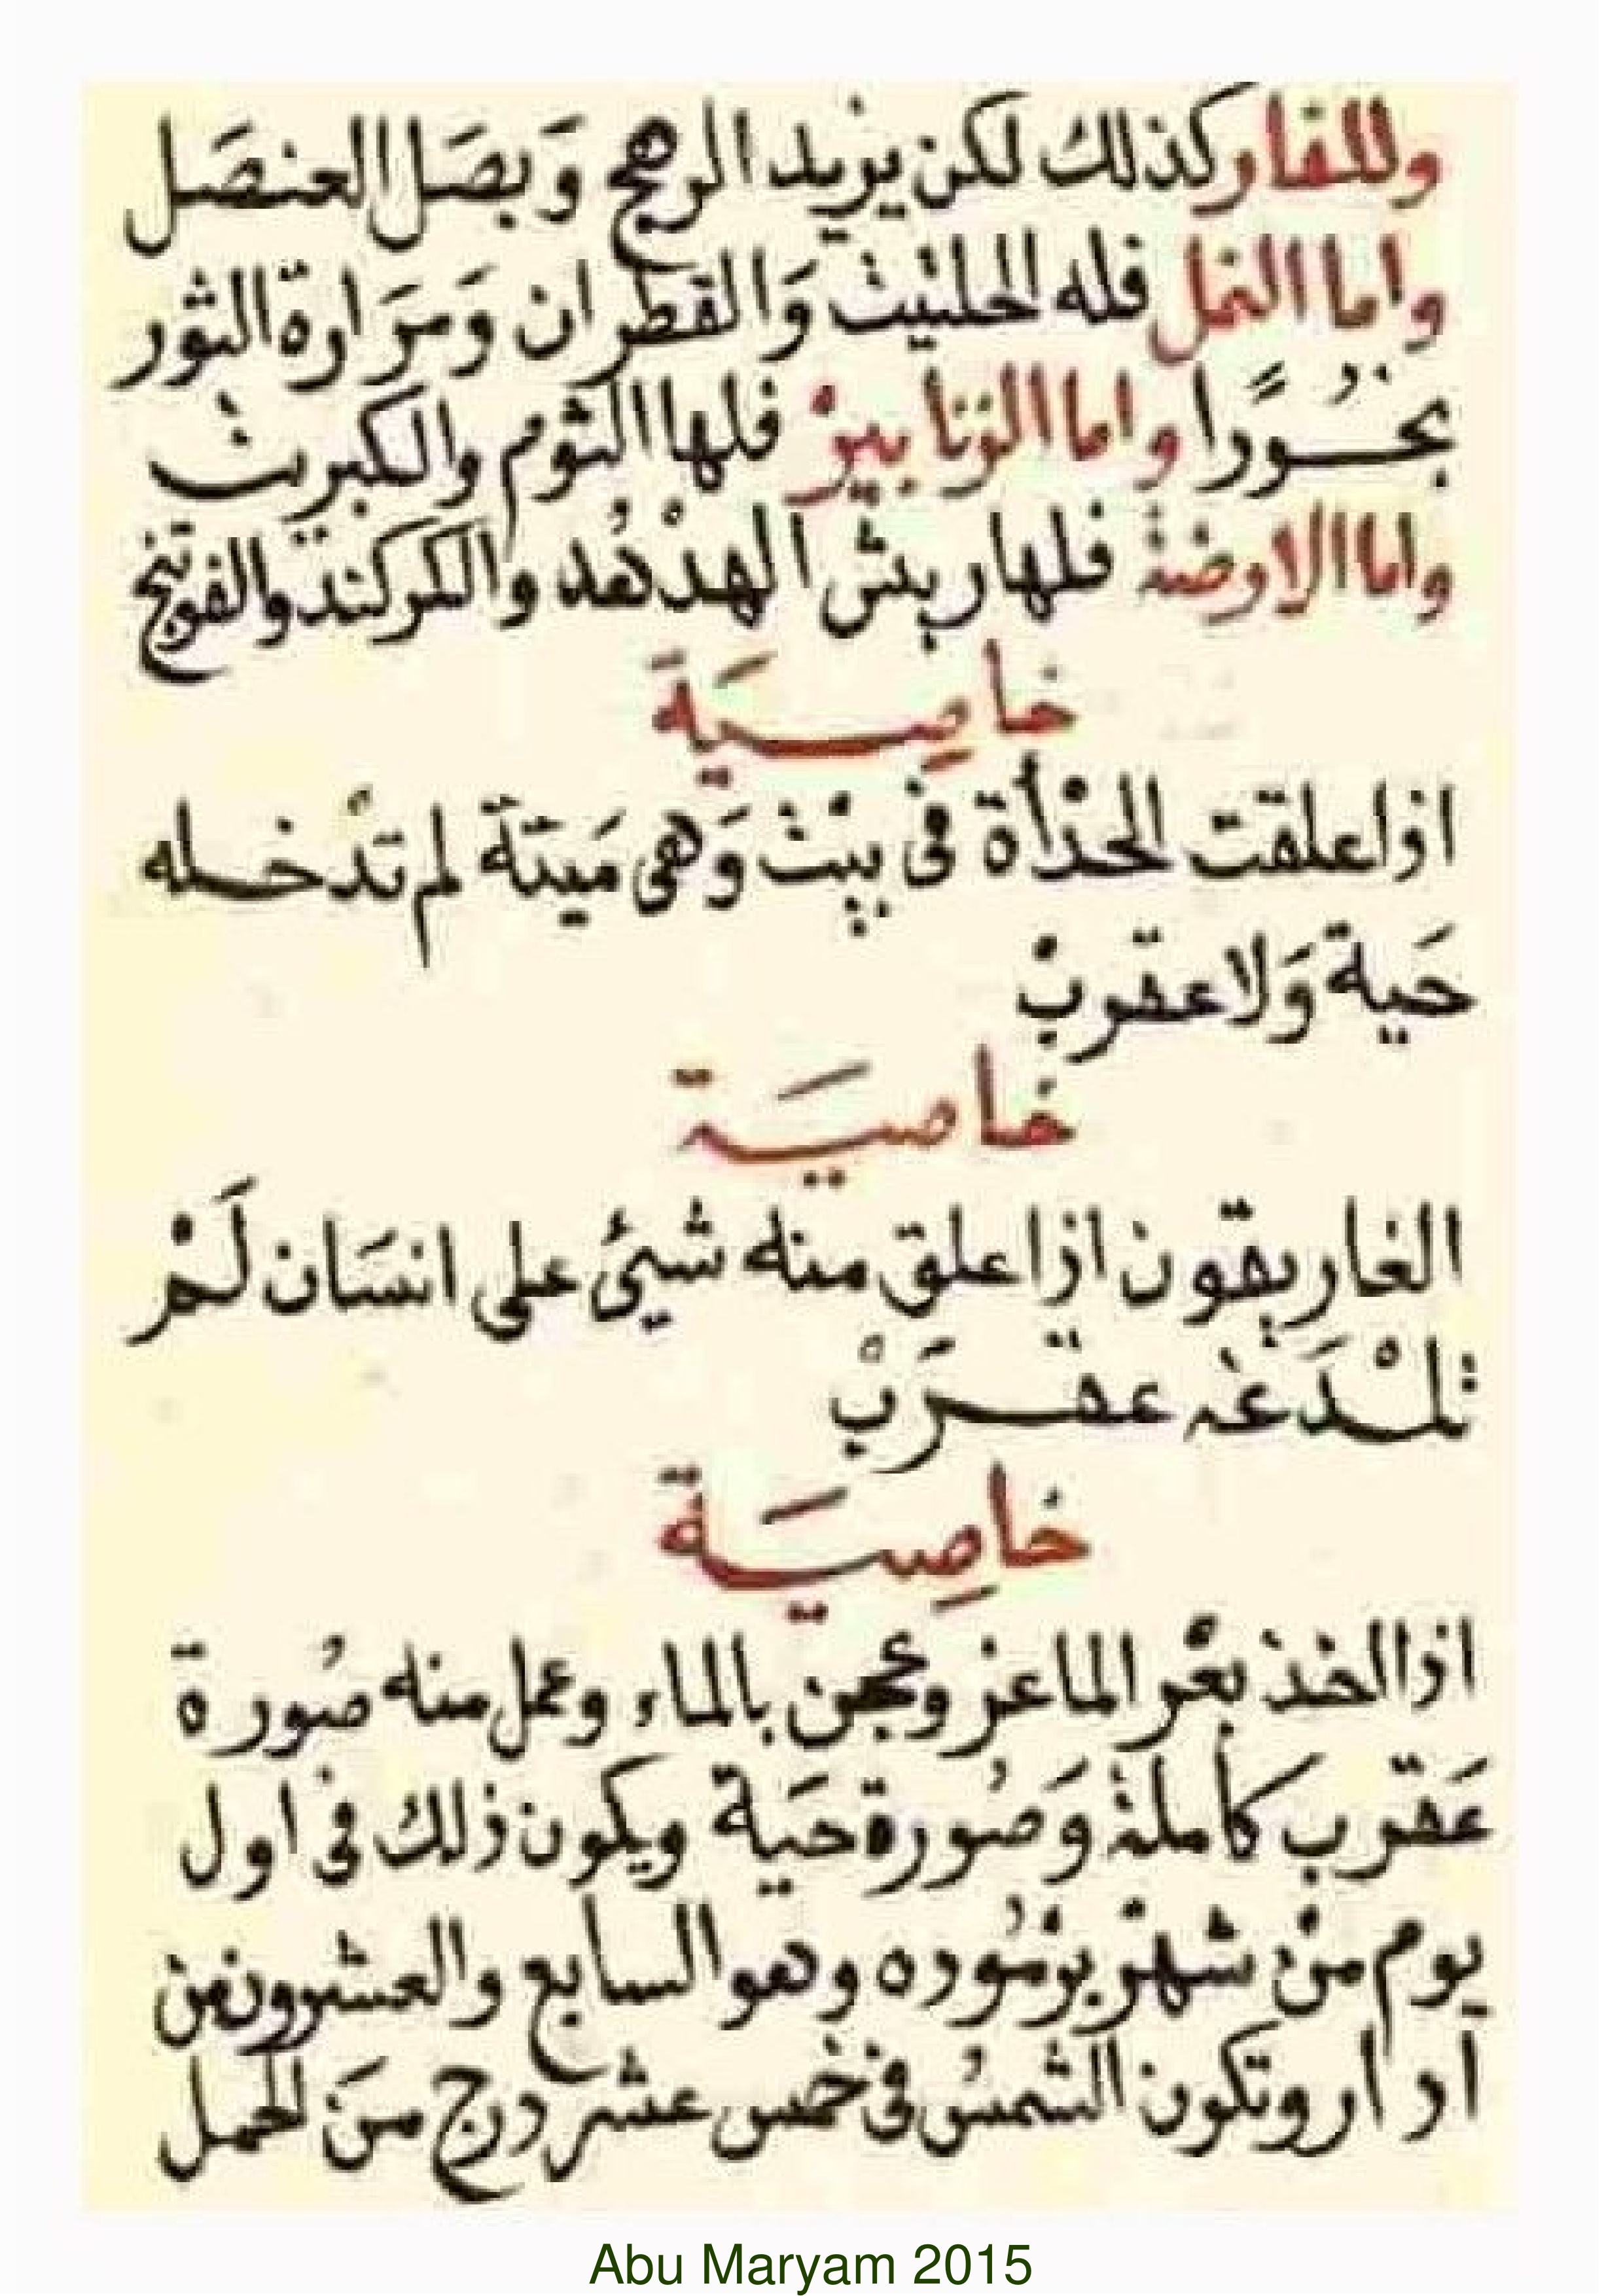 وللفار كذلك لكن يزيد الرهج وَبصَل العنصَل
واما النمل فله الحلتيت وَالقطران وَمرَارة الثور
بخُورًا واما الزنابير فلها الثوم والكبريت
واما الارضة فلها ريش الهدْهُد والكركند والفوتنج
خاصِيَة
اذا علقت الحدْأة فى بيْت وَهى مَيتة لم تدْخله
حَية وَلا عقربْ
خاصيَة
الغاريقون اذا علق منه شيئ على انسَان لَمْ
تلْدَغْه عقرَبْ
خاصِيَة
اذا اتخذ بعْر الماعز وعجن بالماء وعمل منه صُورة
عَقرب كاملة وَصُورة حَية ويكون ذلك فى اول
يوم منْ شهْر برْمُوده وهو السابع والعشرون من
ادار وتكون الشمسُ فى خمس عشر درج منَ الحمل
Abu Maryam 2015